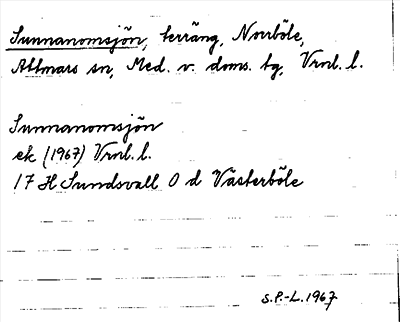 Sunnanomsjön, terräng, Norrböle,
Attmars sn, Med. v. doms. tg, Vrnl. l.
Sunnanomsjön
ek (1967) Vrnl. l.
17 H Sundsvall O d Västerböle
S.P.-L. 1967